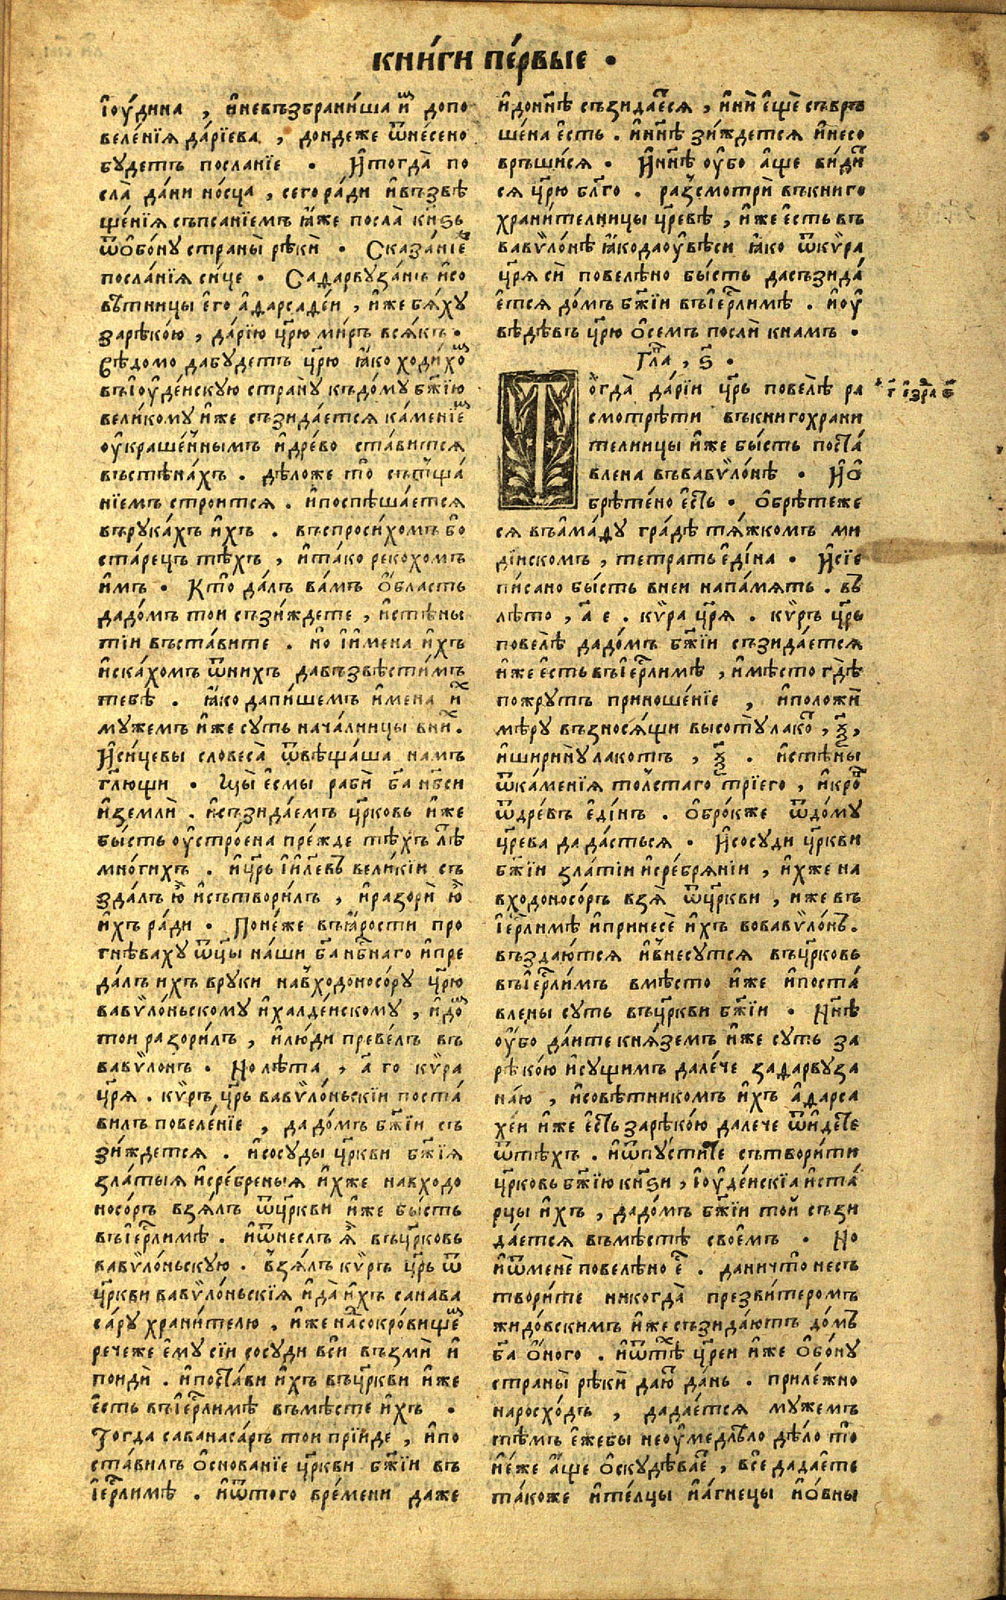 кни́ги пе́рвые .
їоу́дина , и҆невъзбрани́ша и҆м допо
веле́нїѧ да́рїева , дондеже ѿне́сено
бу́детъ посланїе . И҆тогда̀ по
сла̀ да́ни но́сца , сего ра́ди и҆възвѣ
ще́нїѧ съписанїемъ ꙗ҆́же посла̀ кн҃ѕь
ѿѻ҆бону страны̀ рѣкѝ . Сказа́нїе
посла́нїѧ си́це . Садарвуза́нъ и҆со
вѣ́тницы є҆го а҆дарсаде́и , и҆же бѧ́ху
зарѣко́ю , да́рїю цр҃ю ми́ръ всѧ́къ .
Вѣ́домо дабудетъ цр҃ю ꙗ҆́ко ходи́хом
въїоуде́йскую страну къдому бж҃їю
вели́кому и҆́же съзида́етсѧ ка́менїем
оу҆краше́ннымъ и҆дре́во ста́витсѧ
въстѣна́хъ . дѣ́ложе то̀ сътща́
нїемъ строитсѧ . и҆поспѣша́етсѧ
върука́хъ и҆́хъ . въспроси́хомъ бо
ста́рецъ тѣ́хъ , и҆та́ко рекохомъ
и҆мъ . Кто̀ да́лъ ва́мъ ѻ҆́бласть
дадо́мъ тои съзи́ждете , и҆стѣны
тїи въста́вите . но и҆и҆мена и҆́хъ
и҆ска́хомъ ѿни́хъ дабъзвѣсти́мъ
тебѣ̀ . ꙗ҆́ко дапи́шемъ и҆мена и҆х
му́жемъ и҆же суть нача́лницы в ни́х .
И҆си́цевы словеса̀ ѿвѣща́ша намъ
гл҃ющи . Мы̀ є҆смы рабѝ ба҃ нбс҃и
и҆землѝ . и҆съзида́емъ цр҃ковь и҆́же
бы́сть оу҆стро́ена пре́жде тѣ́хъ лѣ́т
мно́гихъ . и҆цр҃ь їи҃левъ вели́кїи съ
зда́лъ ю҆̀ и҆сътвори́лъ , и҆разорѝ ю҆̀
и҆́хъ ра́ди . Поне́же въꙗ҆́рости про
гнѣваху ѿц҃ы на́ши ба҃ нбс҃наго и҆пре
да́лъ и҆хъ вруки навходоносо́ру цр҃ю
вавѷло́ньскому и҆халде́йскому , и҆до́м
тои разори́лъ , и҆лю́ди преве́лъ въ
вавѷло́нъ . Нолѣта , а҃ го кѵ́ра
цр҃ѧ . кѵ́ръ цр҃ь вавѷло́ньскїи поста́
вилъ повеле́нїе , дадо́мъ бж҃їи съ
зи́ждетсѧ . и҆сосуды цр҃кви бж҃їѧ
зла́тыѧ и҆сре́бреныѧ и҆́хже навходо
носо́ръ взѧ́лъ ѿцр҃кви и҆же бы́сть
въїер҃лимѣ . и҆ѿнеслъ ѧ҆̀ въцр҃ковь
вавѷло́ньскую . взѧ́лъ кѵ́ръ цр҃ь ѿ
цр҃кви вавѷло́ньскїѧ и҆да̀ и҆́хъ санава
са́ру храни́телю , и҆́же насокро́вищем
рече́же є҆му сїи сосуди вси възмѝ и҆
поидѝ . и҆поста́ви и҆́хъ въцр҃кви и҆же
є҆сть въїер҃лимѣ въмѣсте и҆́хъ .
Тогда саванаса́ръ тои прїи́де , и҆по
ста́вилъ ѻ҆снова́нїе цр҃кви бж҃їи въ
їер҃лимѣ . и҆ѿтого вре́мени даже
и҆дони́нѣ съзида́есѧ , и҆нѝ є҆щѐ съврь
ше́на є҆́сть . и҆ни́нѣ зи́ждетсѧ и҆несо
връши́сѧ . И҆ни́нѣ оу҆́бо а҆́ще ви́дит
сѧ цр҃ю бл҃го . разсмотрѝ въкниго
храни́телницы цр҃евѣ , и҆́же є҆сть въ
вавѷло́нѣ ꙗ҆́кодаоу҆вѣси ꙗ҆́ко ѿкѵ́ра
цр҃ѧ сѝ повелѣно бы́сть дасъзида́
є҆тсѧ до́мъ бж҃їи въїер҃лимѣ . и҆оу҆
вѣдѣвъ цр҃ю ѻ҆семъ послѝ кна́мъ .
Гла҃ , ѕ҃ .
Тогда̀ да́рїи цр҃ь повелѣ̀ ра
смотрѣти въкнигохрани
телницы и҆же бы́сть поста́
влена въвавѷло́нѣ . И҆ѻ҆
брѣте́но є҆сть . ѻ҆брѣтеже
сѧ въа҆ма́ду гра́дѣ тѧ́жкомъ ми
ді́йскомъ , тетрать є҆ди́на . И҆сїе
пи́сано бы́сть внеи напа́мѧть . въ
лѣто , а҃ е . кѵ́ра цр҃ѧ . кѵ́ръ цр҃ь
повелѣ̀ дадо́мъ бж҃їи съзида́етсѧ
и҆же є҆сть въїер҃лимѣ , и҆мѣ́сто гдѣ̀
пожрутъ приноше́нїе , и҆положѝ
мѣ́ру възносѧ́щи высоту̀ лако́т , ѯ҃ ,
и҆ширину̀ лакотъ , ѯ҃ . и҆стѣ́ны
ѿка́менїѧ то́лстаго трїего , и҆кро́м
ѿдре́въ є҆ди́нъ . ѻ҆бро́кже ѿдо́му
цр҃ева да да́стьсѧ . И҆сосуди цр҃кви
бж҃їи зла́тїи и҆сре́брѧнїи , и҆́хже на
входоносо́ръ взѧ̀ ѿцр҃кви , и҆же въ
їер҃лимѣ и҆принесѐ и҆́хъ вовавѷло́нъ .
въздаю́тсѧ и҆внесутсѧ въцр҃ковь
въїер҃лимѣ вмѣ́сто и҆же и҆поста́
влены суть въцр҃кви бж҃їи . Нни҃ѣ
оу҆́бо да́ите кнѧ́земъ и҆же суть за
рѣко́ю и҆сущимъ дале́че задарвуза
на́ю , и҆совѣ́тникомъ и҆́хъ а҆дарса
хе́и и҆же є҆сть зарѣко́ю далече ѿидѣте
ѿтѣ́хъ . и҆ѿпусти́те сътвори́ти
цр҃ковь бж҃їю кн҃ѕи , їоуде́йскїа и҆ста́
рцы и҆́хъ , дадо́мъ бж҃їи той съзи
да́етсѧ въмѣ́стѣ свое́мъ . Но
и҆ѿменѐ повелѣно є҆с . даничто̀ несъ
твори́те никогда̀ презви́теромъ
жидо́вскимъ и҆же съзида́ютъ до́мъ
ба҃ ѻ҆́ного . и҆ѿтѣ̀х цр҃еи и҆же ѻ҆бону
страны̀ рѣкѝ даю́т да́нь . приле́жно
наросхо́дъ , дадае́тсѧ мужемъ
тѣ́мъ є҆́жебы неоу҆медли́ло дѣ́ло то̀
не́же а҆́ще ѻ҆скудѣва́ет , все дадаете
та́коже и҆те́лцы и҆а҆́гнецы и҆ѻ҆вны